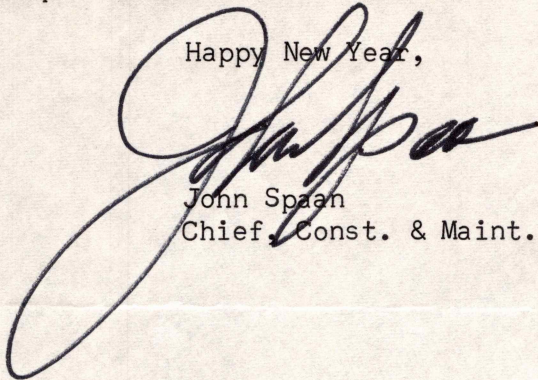 Happy New Year,
John Spaan
John Spaan
Chief, Const. & Maint.